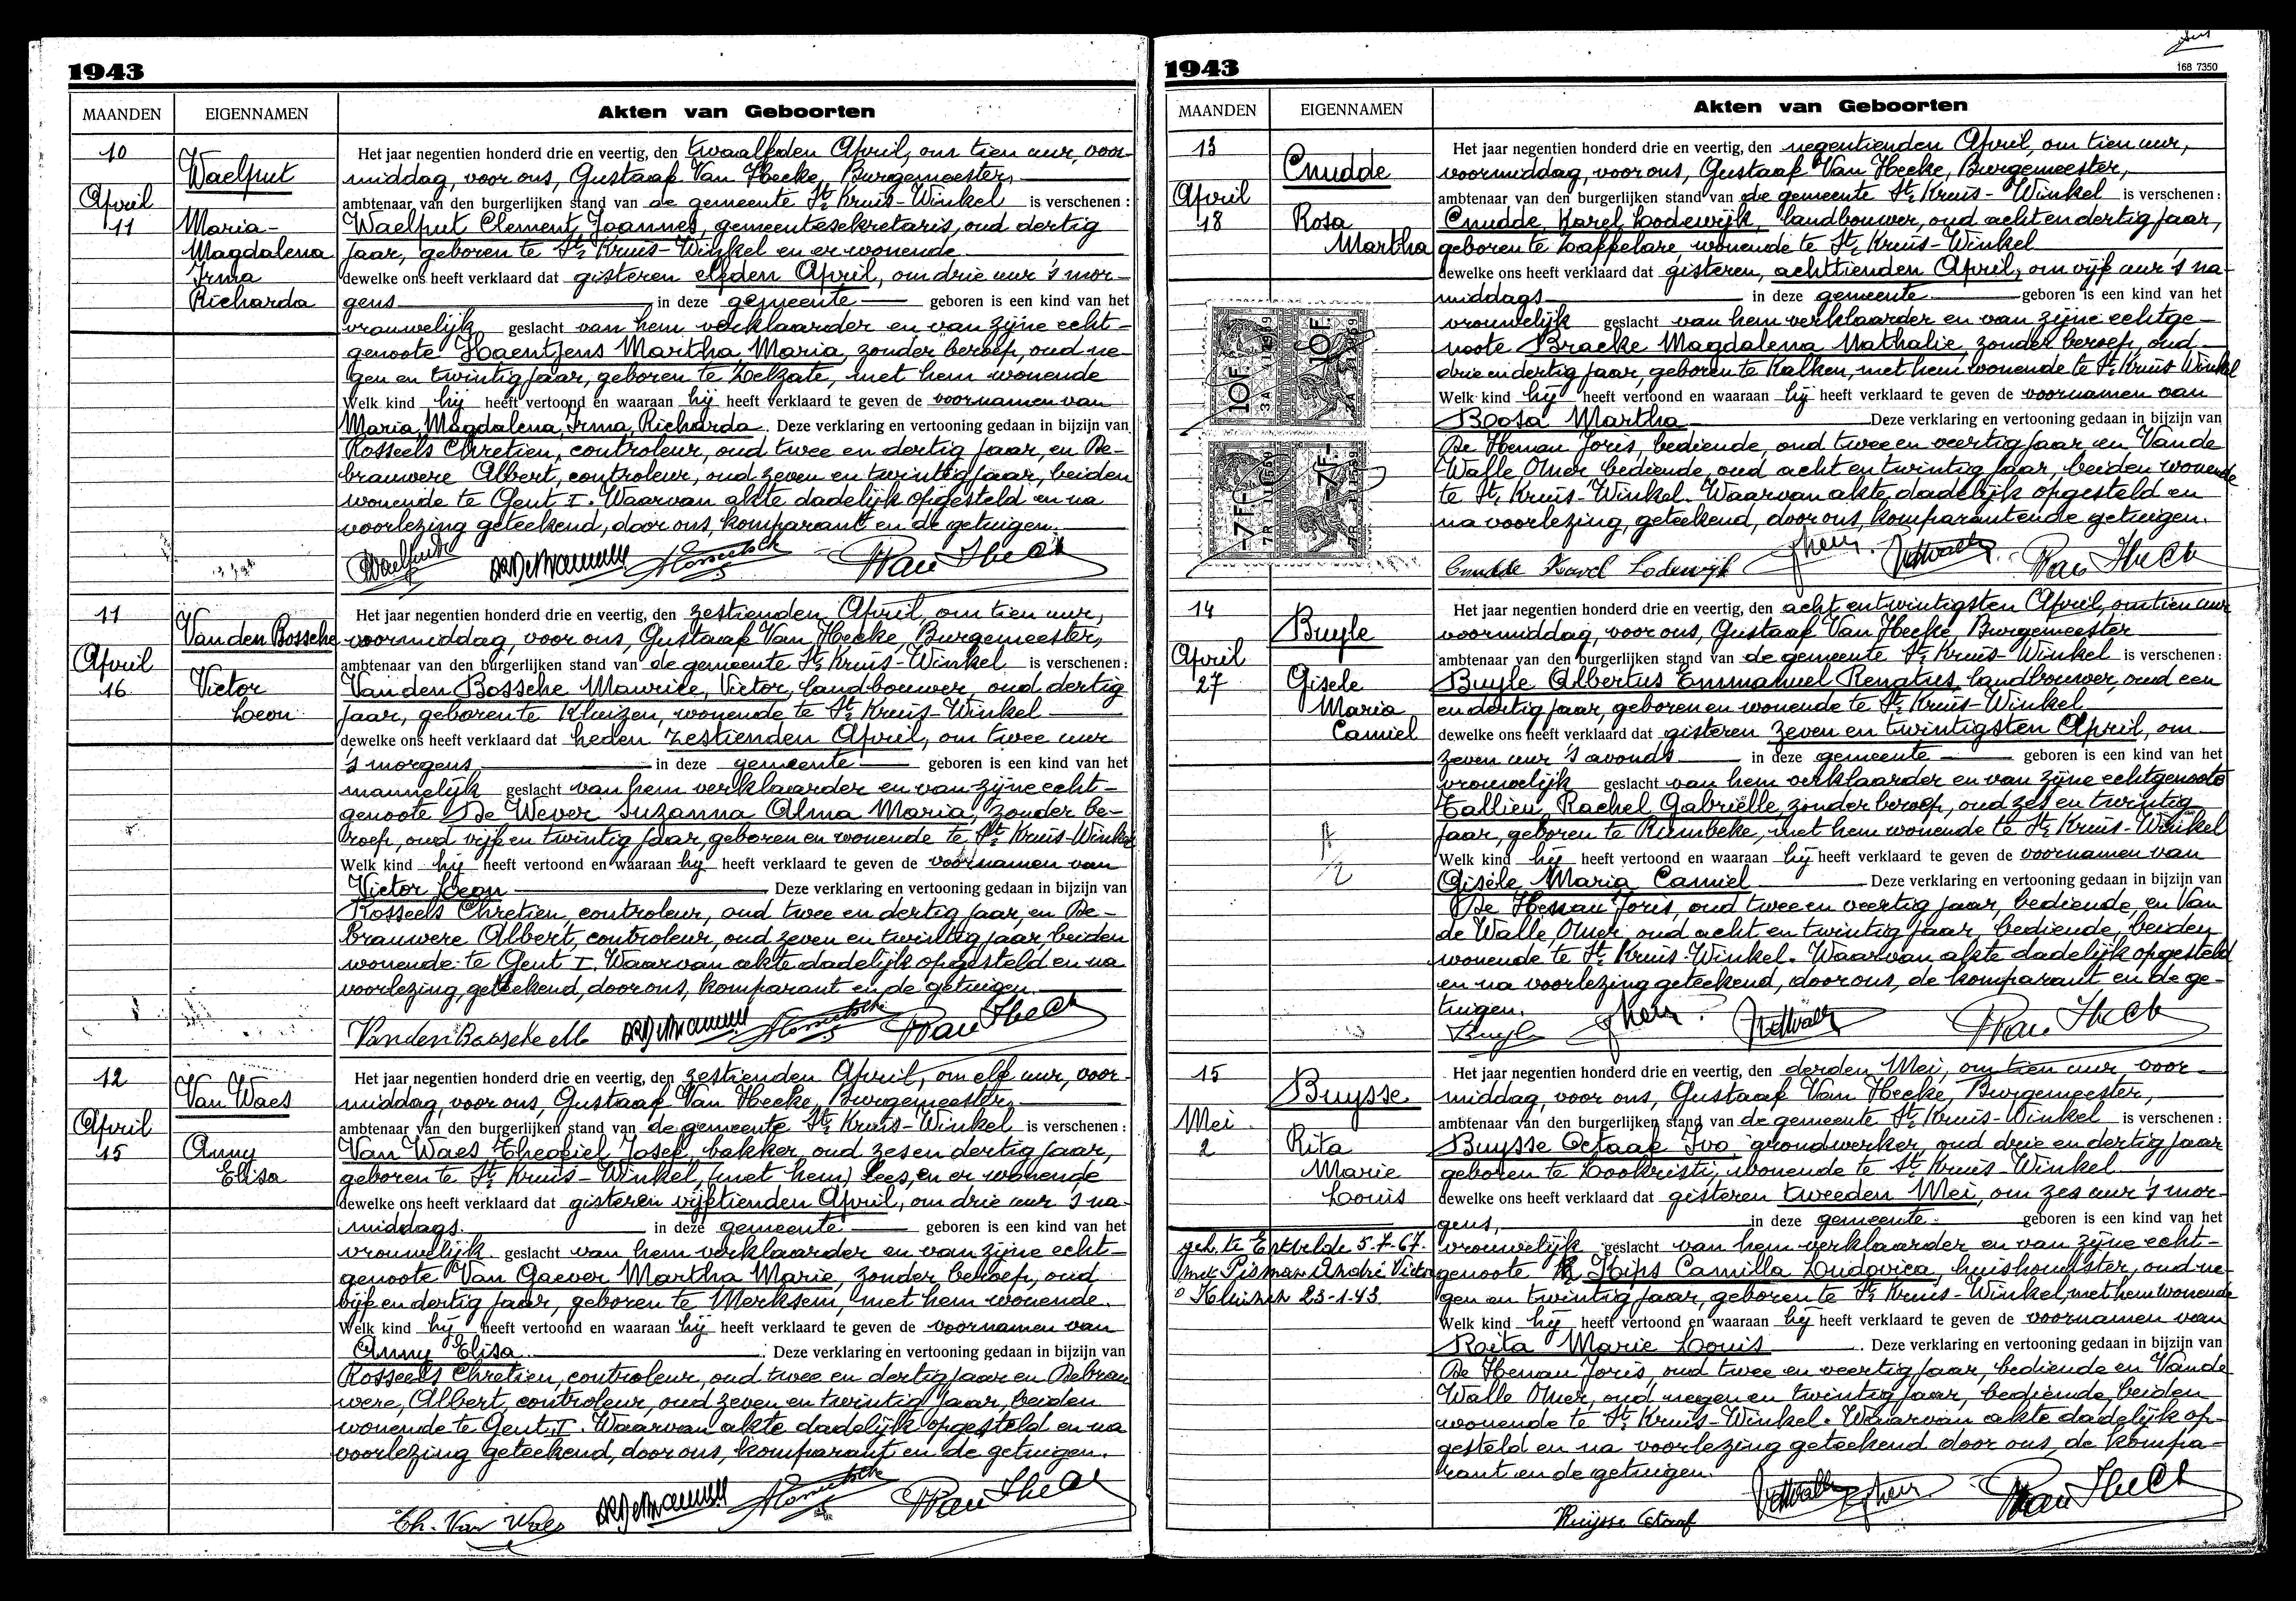 1943
MAANDEN
EIGENNAMEN
Akten van Geboorten
10
Waelput
April
11
Maria-
Magdalena
Irma
Richarda
Het jaar negentien honderd drie en veertig, den twaalfden April, om tien uur, voor-
middag, voor ons, Gustaaf Van Hecke, Burgemeester,
ambtenaar van den burgerlijken stand van de gemeente St. Kruis-Winkel is verschenen:
Waelput Clement Joannes, gemeentesekretaris, oud dertig
jaar, geboren te St. Kruis-Winkel en er wonende
dewelke ons heeft verklaard dat gisteren elfden April, om drie uur 's mor-
gens in deze gemeente geboren is een kind van het
vrouwelijk geslacht van hem verklaarder en van zijne echt-
genoote Haentjens Martha Maria, zonder beroep, oud ne-
gen en twintig jaar, geboren te Zelzate, met hem wonende
Welk kind hij heeft vertoond en waaraan hij heeft verklaard te geven de voornamen van
Maria, Magdalena, Irma, Richarda. Deze verklaring en vertooning gedaan in bijzijn van
Rosseels Chretien, controleur, oud twee en dertig jaar, en De-
brauwere Albert, controleur, oud zeven en twintig jaar, beiden
wonende te Gent I. Waarvan akte dadelijk opgesteld en na
voorlezing geteekend, door ons, komparant en de getuigen.
11
Van den Bossche
April
16
Victor
Leon
Het jaar negentien honderd drie en veertig, den zestienden April, om tien uur,
voormiddag, voor ons, Gustaaf Van Hecke, Burgemeester,
ambtenaar van den burgerlijken stand van de gemeente St. Kruis-Winkel is verschenen:
Van den Bossche Maurice, Victor, landbouwer, oud dertig
jaar, geboren te Kluizen, wonende te St. Kruis-Winkel
dewelke ons heeft verklaard dat heden zestienden April, om twee uur
's morgens in deze gemeente geboren is een kind van het
mannelijk geslacht van hem verklaarder en van zijne echt-
genoote De Wever Suzanna Alma Maria, zonder be-
roep, oud vijf en twintig jaar, geboren en wonende te St. Kruis-Winkel
Welk kind hij heeft vertoond en waaraan hij heeft verklaard te geven de voornamen van
Victor Leon Deze verklaring en vertooning gedaan in bijzijn van
Rosseels Chretien, controleur, oud twee en dertig jaar, en De-
brauwere Albert, controleur, oud zeven en twintig jaar, beiden
wonende te Gent I. Waarvan akte dadelijk opgesteld en na
voorlezing, geteekend, door ons, komparant en de getuigen.
Van den Bossche M
12
Van Waes
April
15
Anny
Elisa
Het jaar negentien honderd drie en veertig, den zestienden April, om elf uur, voor-
middag, voor ons, Gustaaf Van Hecke, Burgemeester,
ambtenaar van den burgerlijken stand van de gemeente St. Kruis-Winkel is verschenen:
Van Waes Theofiel Josef, bakker, oud zes en dertig jaar,
geboren te St. Kruis-Winkel, (met hem) lees, en er wonende
dewelke ons heeft verklaard dat gisteren vijftienden April, om drie uur 's na-
middags in deze gemeente geboren is een kind van het
vrouwelijk geslacht van hem verklaarder en van zijne echt-
genoote Van Gaever Martha Marie, zonder beroep, oud
vijf en dertig jaar, geboren te Merksem, met hem wonende.
Welk kind hij heeft vertoond en waaraan hij heeft verklaard te geven de voornamen van
Anny Elisa Deze verklaring en vertooning gedaan in bijzijn van
Rosseels Chretien, controleur, oud twee en dertig jaar en Debrau
were, Albert, controleur, oud zeven en twintig jaar, beiden
wonende te Gent I. Waarvan akte dadelijk opgesteld en na
voorlezing geteekend, door ons, komparant en de getuigen.
Th. Van Waes
1943
168 7350
MAANDEN
EIGENNAMEN
Akten van Geboorten
13
Cnudde
April
18
Rosa
Martha
Het jaar negentien honderd drie en veertig, den negentienden April, om tien uur,
voormiddag, voor ons, Gustaaf Van Hecke, Burgemeester,
ambtenaar van den burgerlijken stand van de gemeente St. Kruis-Winkel is verschenen:
Cnudde, Karel Lodewijk, landbouwer, oud acht en dertig jaar,
geboren te Zaffelare, wonende te St. Kruis-Winkel
dewelke ons heeft verklaard dat gisteren, achttienden April, om vijf uur 's na-
middags in deze gemeente geboren is een kind van het
vrouwelijk geslacht van hem verklaarder en van zijne echtge-
noote Bracke Magdalena Nathalie, zonder beroep, oud
drie en dertig jaar, geboren te Kalken, met hem wonende te St. Kruis Winkel
Welk kind hij heeft vertoond en waaraan hij heeft verklaard te geven de voornamen van
Roosa Martha Deze verklaring en vertooning gedaan in bijzijn van
De Henau Joris, bediende, oud twee en veertig jaar en Van de
Walle Omer, bediende, oud acht en twintig jaar, beiden wonende
te St. Kruis-Winkel. Waarvan akte dadelijk opgesteld en
na voorlezing, geteekend, door ons, komparant en de getuigen.
10F.
10F.
-7F.-
-7F.-
Cnudde Karel Lodewijk
14
Buyle
April
27
Gisele
Maria
Camiel
Het jaar negentien honderd drie en veertig, den acht en twintigsten April, om tien uur
voormiddag, voor ons, Gustaaf Van Hecke, Burgemeester
ambtenaar van den burgerlijken stand van de gemeente St. Kruis-Winkel is verschenen:
Buyle Albertus Emmanuel Renatus, landbouwer, oud een
en dertig jaar, geboren en wonende te St. Kruis-Winkel
dewelke ons heeft verklaard dat gisteren zeven en twintigsten April, om
zeven uur 's avonds in deze gemeente geboren is een kind van het
vrouwelijk geslacht van hem verklaarder en van zijne echtgenoote
Tallieu Rachel Gabriëlle, zonder beroep, oud zes en twintig
jaar, geboren te Rumbeke, met hem wonende te St. Kruis-Winkel
Welk kind hij heeft vertoond en waaraan hij heeft verklaard te geven de voornamen van
Gisèle Maria Camiel Deze verklaring en vertooning gedaan in bijzijn van
De Henau Joris, oud twee en veertig jaar, bediende, en Van
de Walle, Omer, oud acht en twintig jaar, bediende, beiden
wonende te St. Kruis-Winkel. Waarvan akte dadelijk opgesteld
en na voorlezing geteekend, door ons, de komparant en de ge-
tuigen.
Buyle
15
Buysse
Mei
2
Rita
Marie
Louis
geh. te Ertvelde 5.7.67.
met Pisman André Victor
° Kluizen 23-1-43
Het jaar negentien honderd drie en veertig, den derden Mei, om tien uur, voor-
middag, voor ons, Gustaaf Van Hecke, Burgemeester,
ambtenaar van den burgerlijken stand van de gemeente St. Kruis-Winkel is verschenen:
Buysse Octaaf Ivo, grondwerker, oud drie en dertig jaar
geboren te Lookristi, wonende te St. Kruis-Winkel
dewelke ons heeft verklaard dat gisteren tweeden Mei, om zes uur 's mor-
gens, in deze gemeente geboren is een kind van het
vrouwelijk geslacht van hem verklaarder en van zijne echt-
genoote Hips Camilla Ludovica, huishoudster, oud ne-
gen en twintig jaar, geboren te St. Kruis-Winkel, met hem wonende
Welk kind hij heeft vertoond en waaraan hij heeft verklaard te geven de voornamen van
Rita Marie Louis Deze verklaring en vertooning gedaan in bijzijn van
De Henau Joris, oud twee en veertig jaar, bediende en Van de
Walle Omer, oud negen en twintig jaar, bediende, beiden
wonende te St. Kruis-Winkel. Waarvan akte dadelijk op-
gesteld en na voorlezing geteekend door ons, de kompa-
rant en de getuigen.
Buysse Octaaf